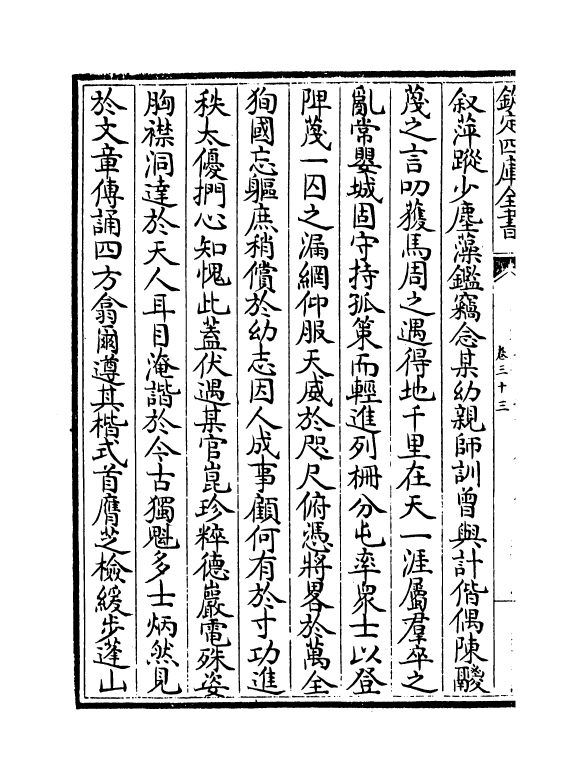 欽定四庫全書
卷三十三
叙萍蹤少塵藻鑑竊念某幼親師訓曾與計偕偶陳鄹
蔑之言叨獲馬周之遇得地千里在天一涯屬羣卒之
亂常嬰城固守持孤策而輕進列柵分屯率衆士以登
陴蔑一囚之漏網仰服天威於咫尺俯憑將畧於萬全
狥國忘軀庶稍償於幼志因人成事顧何有於寸功進
秩太優捫心知愧此蓋伏遇某官崑珍粹德巖電殊姿
胸襟洞達於天人耳目淹諧於今古獨魁多士炳然見
於文章傳誦四方翕爾遵其楷式首膺芝檢緩步蓬山